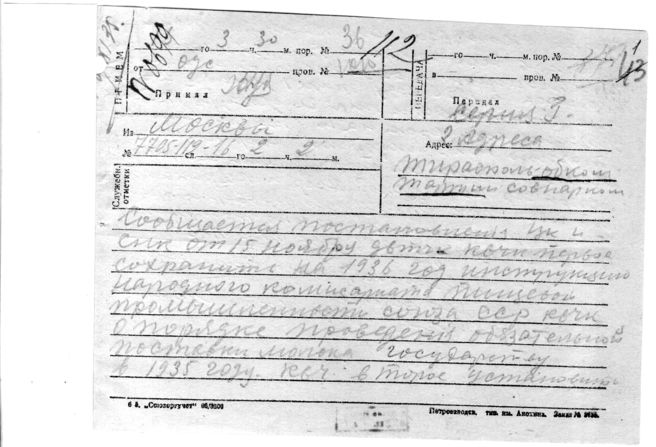 ПРИЕМ
го 3 ч. 30 м. пор. № 36
112
от Одс пров. №
Принял
ПЕРЕДАЧА
го ч. м. пор. №
в пров. №
Передал
Серия Г.
Из Москвы
2 адреса
Адрес:
№ 7705-119-16 сл. 2 го ч. 2 м.
Служебн. отметки
Тирасполь обком
совнарком
Сообщается постановление Цк и
СНК от 15 ноября двтчк квчк первое
сохранить на 1936 год инструкцию
народного комисариата пищевой
промышленности союза ССР квчк
о порядке проведения обязательной
поставки молока государству
в 1935 году. квч второе установить
ф 5. „Союзоргучет“
Петрозаводск, тип. им. Анохина. Заказ №